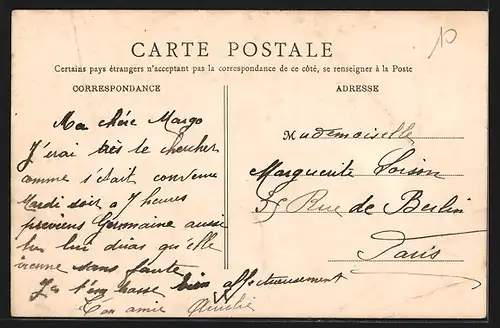 10
CARTE POSTALE
Certains pays étrangers n'acceptant pas la correspondance de ce côté, se renseigner à la Poste
CORRESPONDANCE
Ma chére Margo
J'irai très te chercher
comme s'était convenue
Mardi soir a 7 heures
previens Germaine aussi
tu lui diras qu'elle
vienne sans faute
Je t'embrasse bien affectueusement
Ton amie
ADRESSE
Mademoiselle
Marguerite Loison
Rue de Berlin
Paris